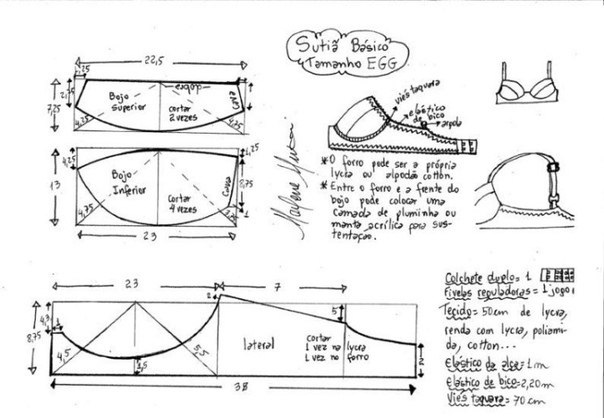 Sutiã Básico
Tamanho EGG
22,5
1,25
7,25
2,25
dobra
Bojo
Superior
cortar
2 vezes
Cava
4,25
4,25
viés taquara
elástico
de bico
argola
13
4,25
1,25
Bojo
Inferior
Cortar
4 vezes
Cava
8,75
4,75
1
23
Marlene Mukai
*O forro pode ser a própria
lycra ou algodão cotton.
*Entre o forro e a frente do
bojo pode colocar uma
camada de pluminha ou
manta acrílica para sus-
tentação.
23
7
2
8,75
4,3
1
4,5
1,5
5,5
5
lateral
Cortar
1 vez na lycra
1 vez no forro
2
38
Colchete duplo = 1
Fivelas reguladoras = 1 jogo
Tecido = 50cm de lycra,
renda com lycra, poliami-
da, cotton...
Elástico da alça = 1m
Elástico de bico = 2,20m
Viés taquara = 70 cm